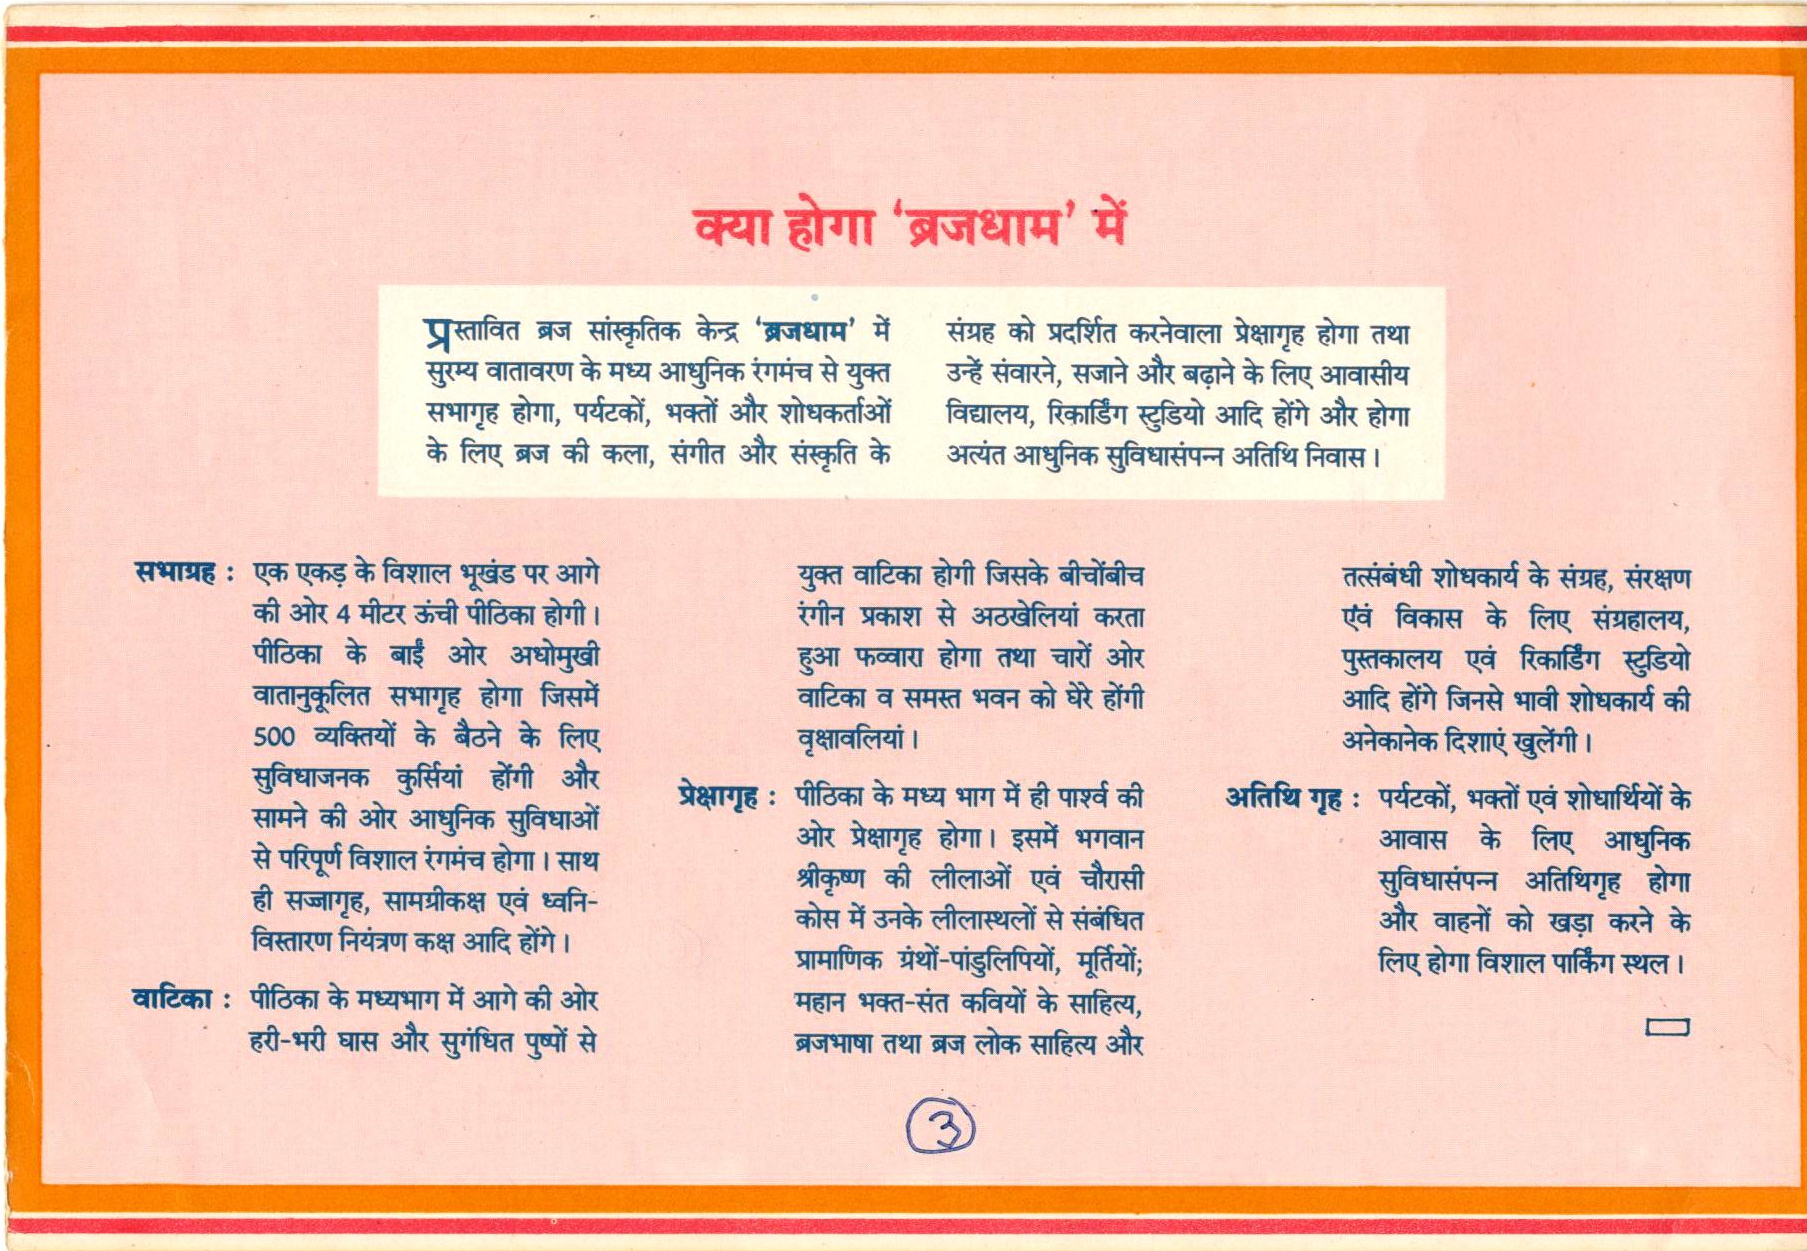 क्या होगा ‘ब्रजधाम’ में
प्रस्तावित ब्रज सांस्कृतिक केन्द्र ‘ब्रजधाम’ में
सुरम्य वातावरण के मध्य आधुनिक रंगमंच से युक्त
सभागृह होगा, पर्यटकों, भक्तों और शोधकर्ताओं
के लिए ब्रज की कला, संगीत और संस्कृति के
संग्रह को प्रदर्शित करनेवाला प्रेक्षागृह होगा तथा
उन्हें संवारने, सजाने और बढ़ाने के लिए आवासीय
विद्यालय, रिकार्डिंग स्टुडियो आदि होंगे और होगा
अत्यंत आधुनिक सुविधासंपन्न अतिथि निवास।
सभाग्रह : एक एकड़ के विशाल भूखंड पर आगे
की ओर 4 मीटर ऊंची पीठिका होगी।
पीठिका के बाईं ओर अधोमुखी
वातानुकूलित सभागृह होगा जिसमें
500 व्यक्तियों के बैठने के लिए
सुविधाजनक कुर्सियां होंगी और
सामने की ओर आधुनिक सुविधाओं
से परिपूर्ण विशाल रंगमंच होगा। साथ
ही सज्जागृह, सामग्रीकक्ष एवं ध्वनि-
विस्तारण नियंत्रण कक्ष आदि होंगे।
वाटिका : पीठिका के मध्यभाग में आगे की ओर
हरी-भरी घास और सुगंधित पुष्पों से
युक्त वाटिका होगी जिसके बीचोंबीच
रंगीन प्रकाश से अठखेलियां करता
हुआ फव्वारा होगा तथा चारों ओर
वाटिका व समस्त भवन को घेरे होंगी
वृक्षावलियां।
प्रेक्षागृह : पीठिका के मध्य भाग में ही पार्श्व की
ओर प्रेक्षागृह होगा। इसमें भगवान
श्रीकृष्ण की लीलाओं एवं चौरासी
कोस में उनके लीलास्थलों से संबंधित
प्रामाणिक ग्रंथों-पांडुलिपियों, मूर्तियों;
महान भक्त-संत कवियों के साहित्य,
ब्रजभाषा तथा ब्रज लोक साहित्य और
तत्संबंधी शोधकार्य के संग्रह, संरक्षण
एवं विकास के लिए संग्रहालय,
पुस्तकालय एवं रिकार्डिंग स्टुडियो
आदि होंगे जिनसे भावी शोधकार्य की
अनेकानेक दिशाएं खुलेंगी।
अतिथि गृह : पर्यटकों, भक्तों एवं शोधार्थियों के
आवास के लिए आधुनिक
सुविधासंपन्न अतिथिगृह होगा
और वाहनों को खड़ा करने के
लिए होगा विशाल पार्किंग स्थल।
३